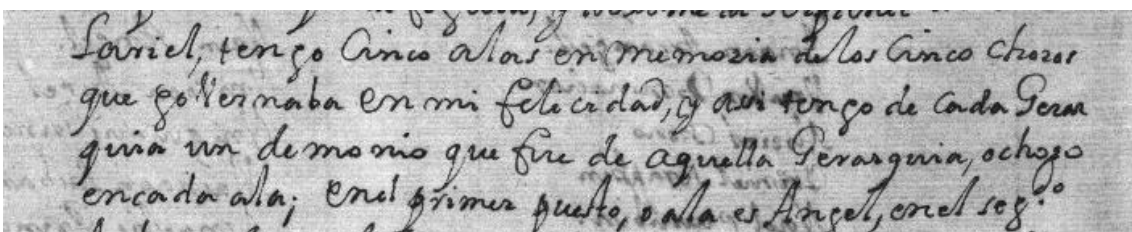 Lariel, tengo Cinco alas en memoria de los Cinco Choros
que goVernaba en mi felicidad, y assi tengo de Cada Gerar
quia un demonio que fue de aquella Gerarquia, o choro
encada ala; enel primer puesto, o ala es Angel, enel seg.º